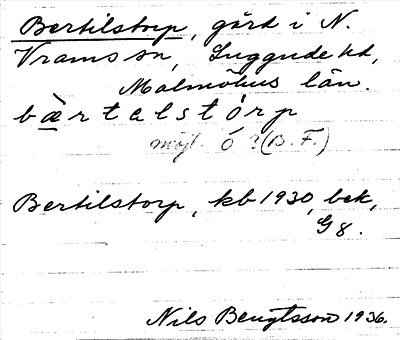 Bertilstorp, gård i N.
Vrams sn, Luggude hd,
Malmöhus län.
bæ̀rtalstórp
möjl. ó? (B. F.)
Bertilstorp, kb 1930, bek,
G 8.
Nils Bengtsson 1936.